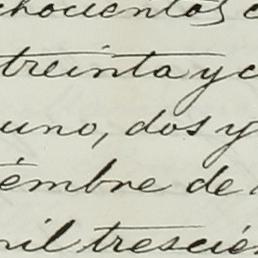 chocientos
treinta y c
uno, dos y
iembre de
mil trescien